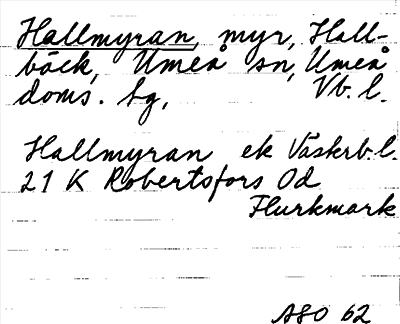 Hallmyran, myr, Hall-
böck, Umeå sn, Umeå
doms. sg, Vb. l.
Hallmyran ek Väskrb. l.
21 K Robertsfors Od
Flurkmark
ASO 62